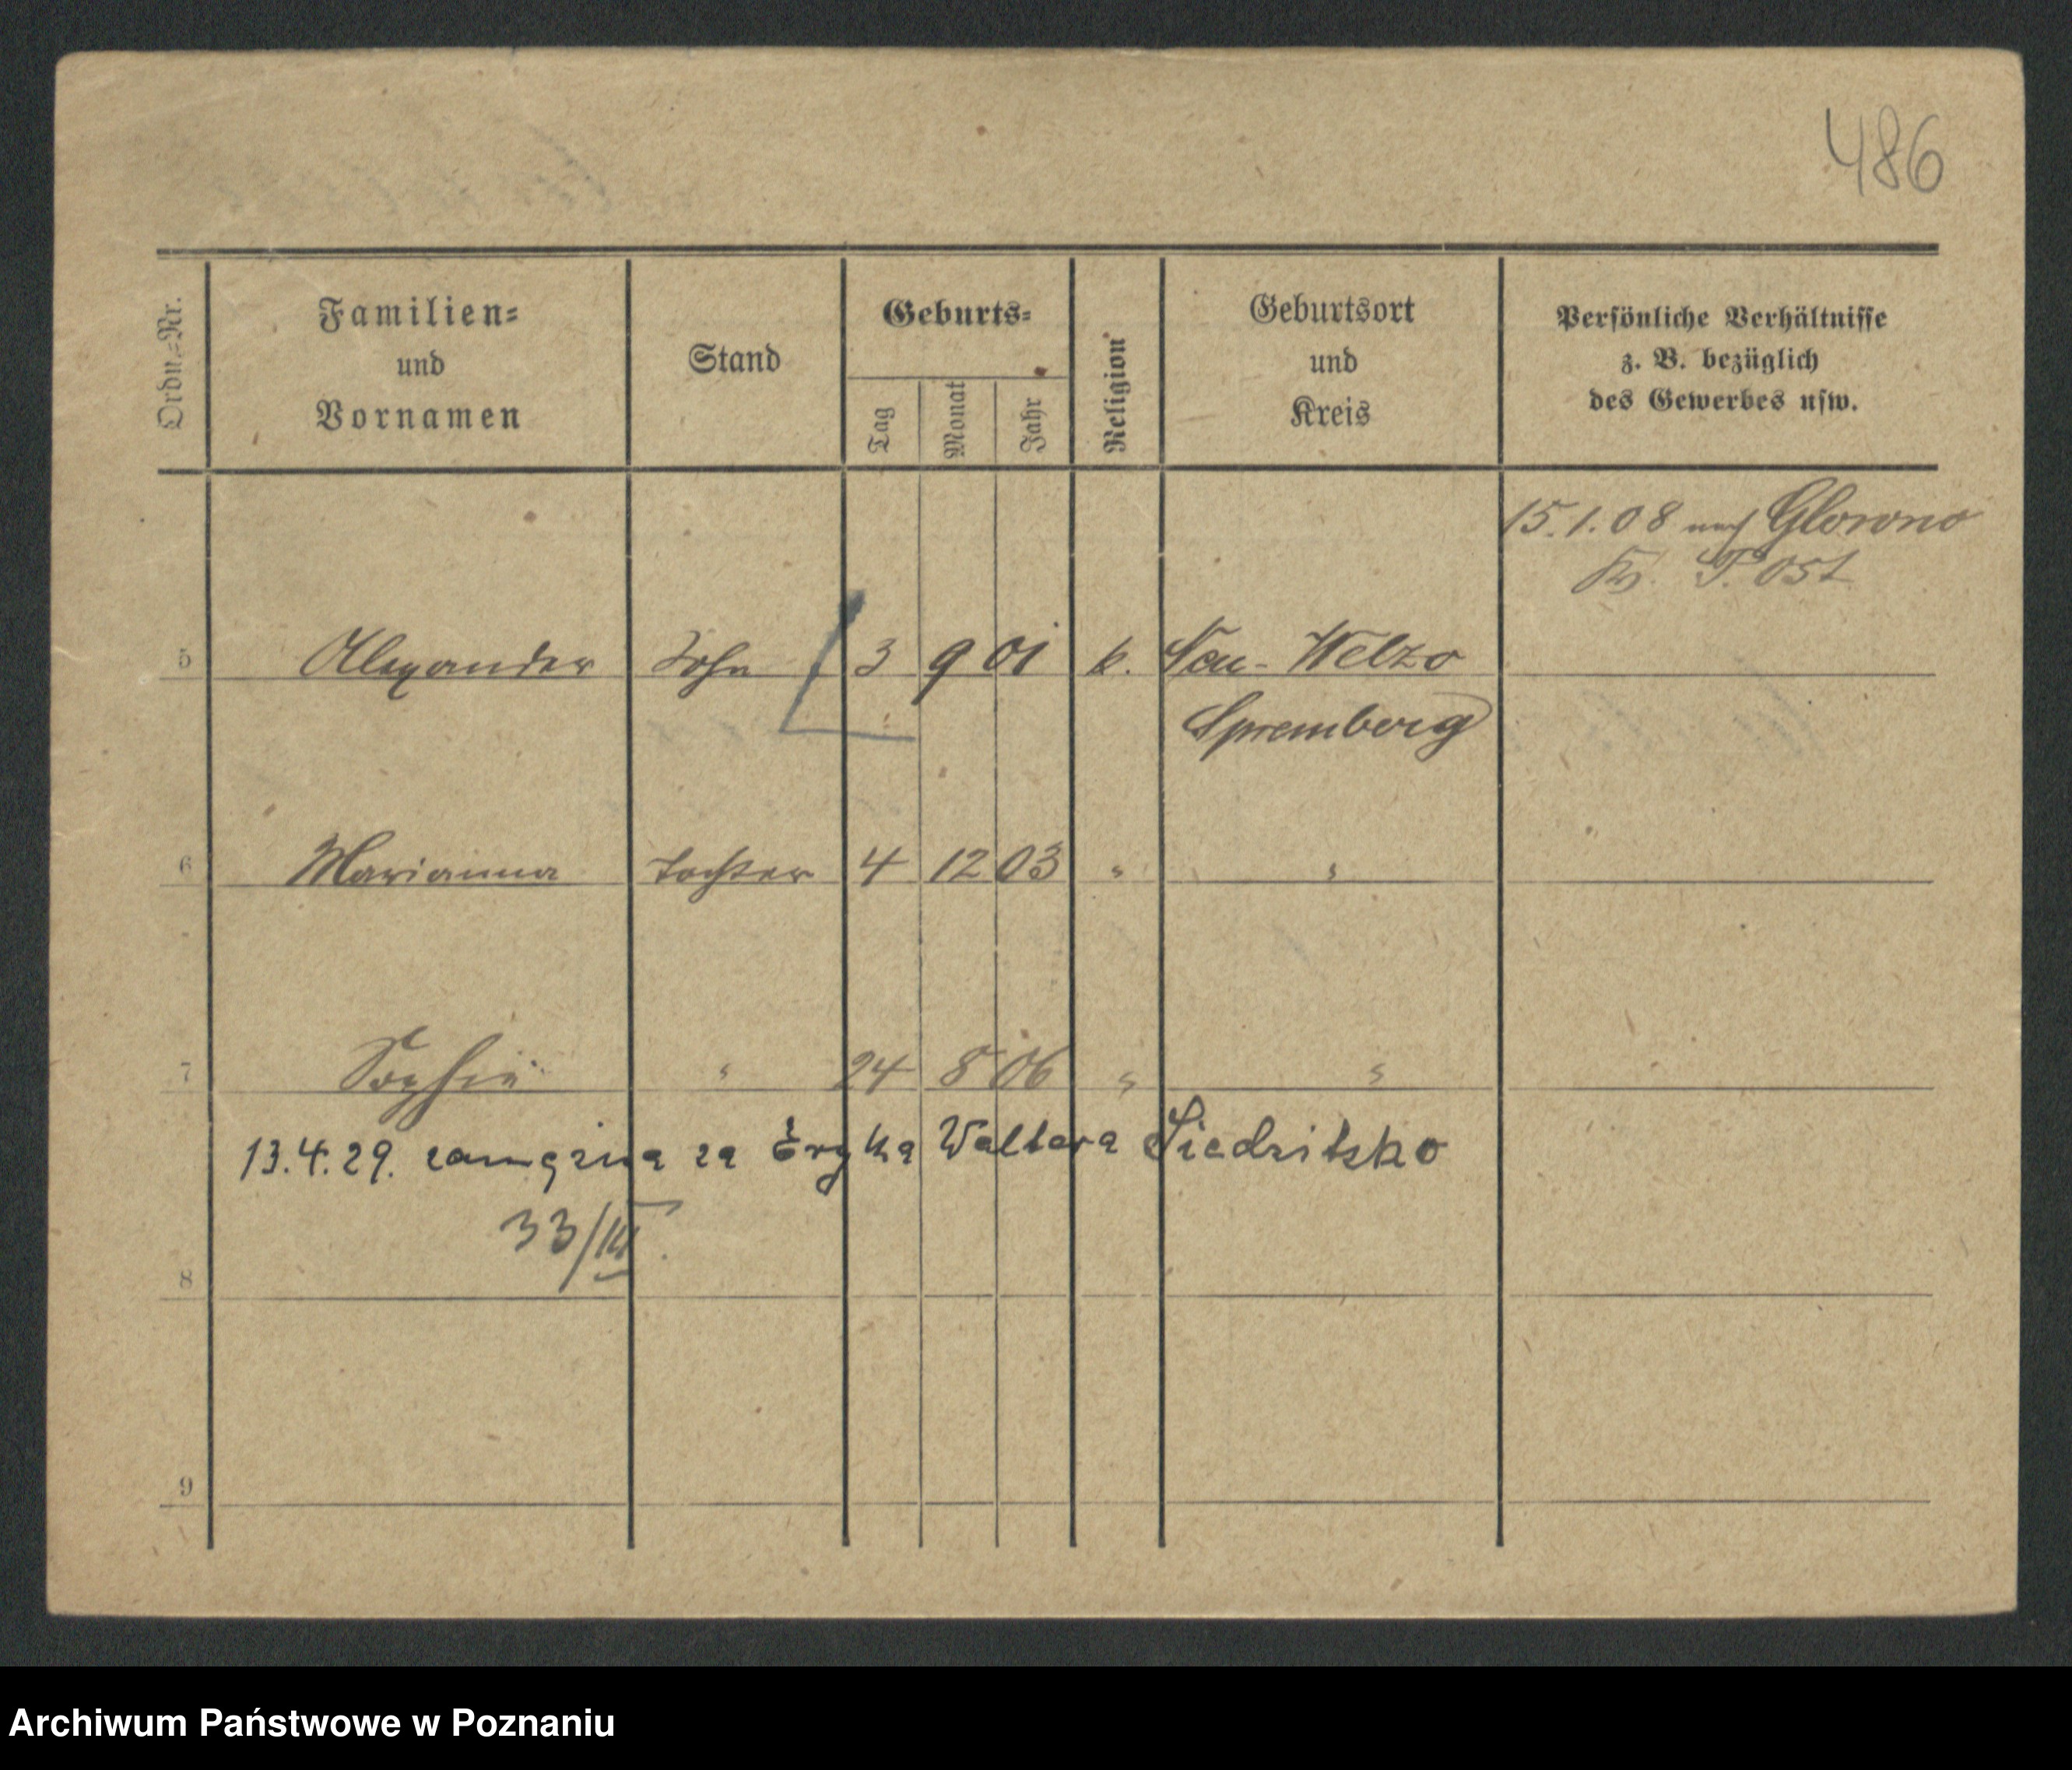 486
Ordn.-Nr.
Familien-
und
Vornamen
Stand
Geburts-
Tag
Monat
Jahr
Religion
Geburtsort
und
Kreis
Persönliche Verhältnisse
z. B. bezüglich
des Gewerbes usw.
15.1.08 nach Glowno
Kr. P. Ost
5 Alexander Sohn 3 9 01 k. Neu-Welzo
Spremberg
6 Marianna Tochter 4 12 03 " "
7 Sophie " 24 8 06 " "
13.4.29. zamężna za Eryka Waltera Siedritzko
33/III.
8
9
Archiwum Państwowe w Poznaniu